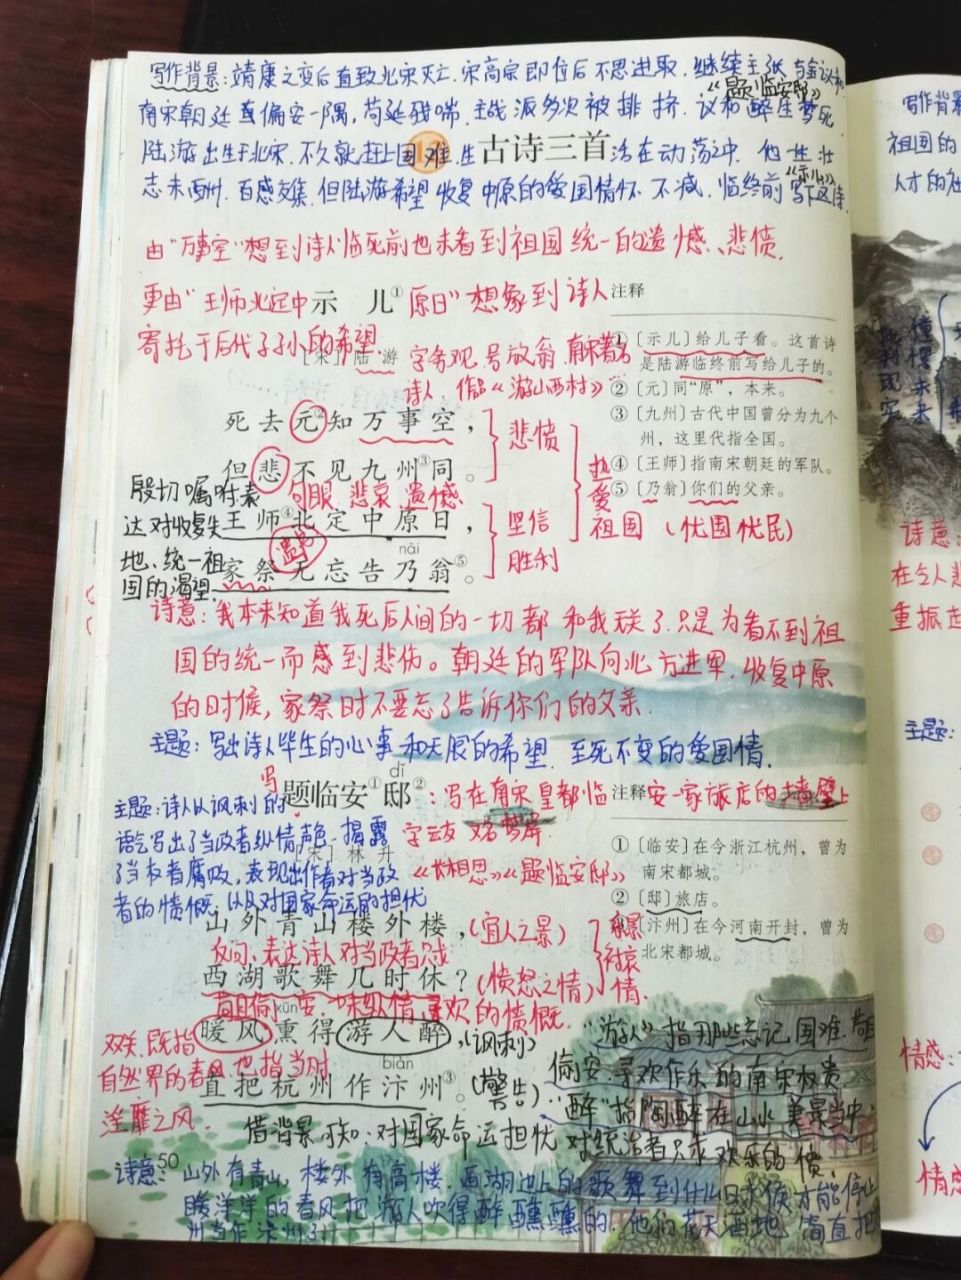 写作背景:靖康之变后直致北宋灭亡.宋高宗即位后不思进取.继续主张与金议和,
《题临安邸》
南宋朝廷直偏安一隅,苟延残喘.主战派多次被排挤.议和 醉生梦死
陆游出生于北宋.不久就赶上国难.生 活在动荡之中.他 壮
古诗三首
《示儿》
志未酬.百感交集.但陆游希望收复中原的爱国情怀不减.临终前写下这诗.
由"万事空"想到诗人临死前也未看到祖国统一的遗憾、悲愤.
更由"王师北定中原日"想象到诗人
示 儿①
寄托于后代子孙的希望.
[宋]陆 游
字务观.号放翁.南宋著名
诗人,作品《游山西村》
注释
①〔示儿〕给儿子看。这首诗
是陆游临终前写给儿子的。
②〔元〕同“原”,本来。
③〔九州〕古代中国曾分为九个
州,这里代指全国。
④〔王师〕指南宋朝廷的军队。
⑤〔乃翁〕你们的父亲。
死去元②知万事空,
但悲不见九州③同。
悲愤
句眼 悲哀 遗憾
王师④北定中原日,
遗嘱
nǎi
家祭无忘告乃翁⑤。
坚信
胜利
热爱
祖国(忧国忧民)
殷切嘱咐表
达对收复失
地、统一祖
国的渴望.
诗意:我本来知道我死后人间的一切都和我无关了.只是为看不到祖
国的统一而感到悲伤。朝廷的军队向北方进军,收复中原
的时候,家祭时不要忘了告诉你们的父亲.
主题:写出诗人毕生的心事和无限的希望.至死不变的爱国情.
写
dǐ
题临安①邸②
:写在南宋皇都临安一家旅店的墙壁上
[宋]林 升
字云友 又名梦屏
《长相思》《题临安邸》
主题:诗人以讽刺的
语气写出了当政者纵情声色.揭露
了当权者腐败,表现出作者对当政
者的愤慨.以及对国家命运的担忧
注释
①〔临安〕在今浙江杭州,曾为
南宋都城。
②〔邸〕旅店。
③〔汴州〕在今河南开封,曾为
北宋都城。
山外青山楼外楼,(宜人之景)
反问:表达诗人对当政者只求
西湖歌舞几时休?(愤怒之情)
乐景衬哀情.
苟且偷安一味纵情寻欢的愤慨.
xūn
暖风熏得游人醉,(讽刺)
biàn
直把杭州作汴州③。(警告)
双关.既指
自然界的春风也指当时
淫靡之风.
"游人"指那些忘记国难.苟且
偷安.寻欢作乐的南宋权贵
"醉"指陶醉在山水美景当中.
借背景可知:对国家命运担忧 对统治者只求欢乐的愤.
50
诗意:山外有青山,楼外有高楼.西湖边上的歌舞到什么时候才能停止
暖洋洋的春风把游人吹得醉醺醺的.他们花天酒地 简直把杭
州当作汴州了.
写作背景
祖国的
人才的社
憧憬未来
批判现实
诗意:
在令人悲
重振
主题:
情感:
情感